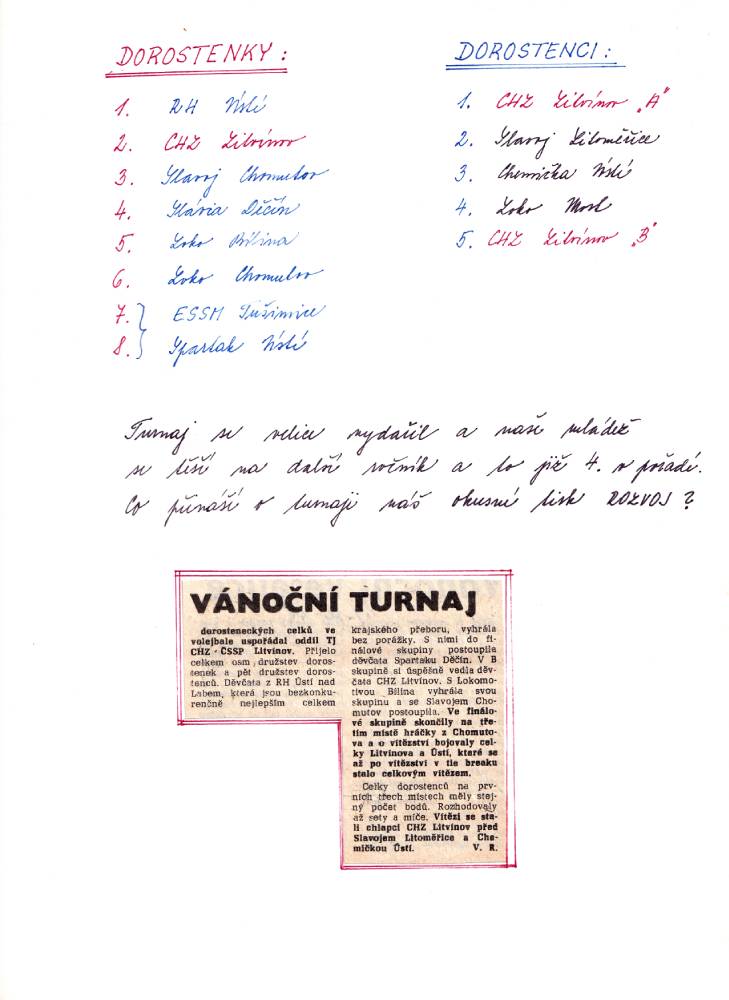 DOROSTENKY :
1. RH Ústí
2. CHZ Litvínov
3. Slavoj Chomutov
4. Slávia Děčín
5. Loko Bílina
6. Loko Chomutov
7. ESSM Tušimice
8. Spartak Ústí
DOROSTENCI :
1. CHZ Litvínov „A"
2. Slavoj Litoměřice
3. Chemička Ústí
4. Loko Most
5. CHZ Litvínov „B"
Turnaj se velice vydařil a naše mládež
se těší na další ročník a to již 4. v pořadí.
Co přináší o turnaji náš okresní tisk ROZVOJ ?
VÁNOČNÍ TURNAJ
dorosteneckých celků ve
volejbale uspořádal oddíl TJ
CHZ - ČSSP Litvínov. Přijelo
celkem osm družstev doros-
tenek a pět družstev doros-
tenců. Děvčata z RH Ústí nad
Labem, která jsou bezkonku-
renčně nejlepším celkem
krajského přeboru, vyhrála
bez porážky. S nimi do fi-
nálové skupiny postoupila
děvčata Spartaku Děčín. V B
skupině si úspěšně vedla děv-
čata CHZ Litvínov. S Lokomo-
tivou Bílina vyhrála svou
skupinu a se Slavojem Cho-
mutov postoupila. Ve finálo-
vé skupině skončily na tře-
tím místě hráčky z Chomuto-
va a o vítězství bojovaly cel-
ky Litvínova a Ústí, které se
až po vítězství v tie breaku
stalo celkovým vítězem.
Celky dorostenců na prv-
ních třech místech měly stej-
ný počet bodů. Rozhodovaly
až sety a míče. Vítězi se sta-
li chlapci CHZ Litvínov před
Slavojem Litoměřice a Che-
mičkou Ústí. V. R.